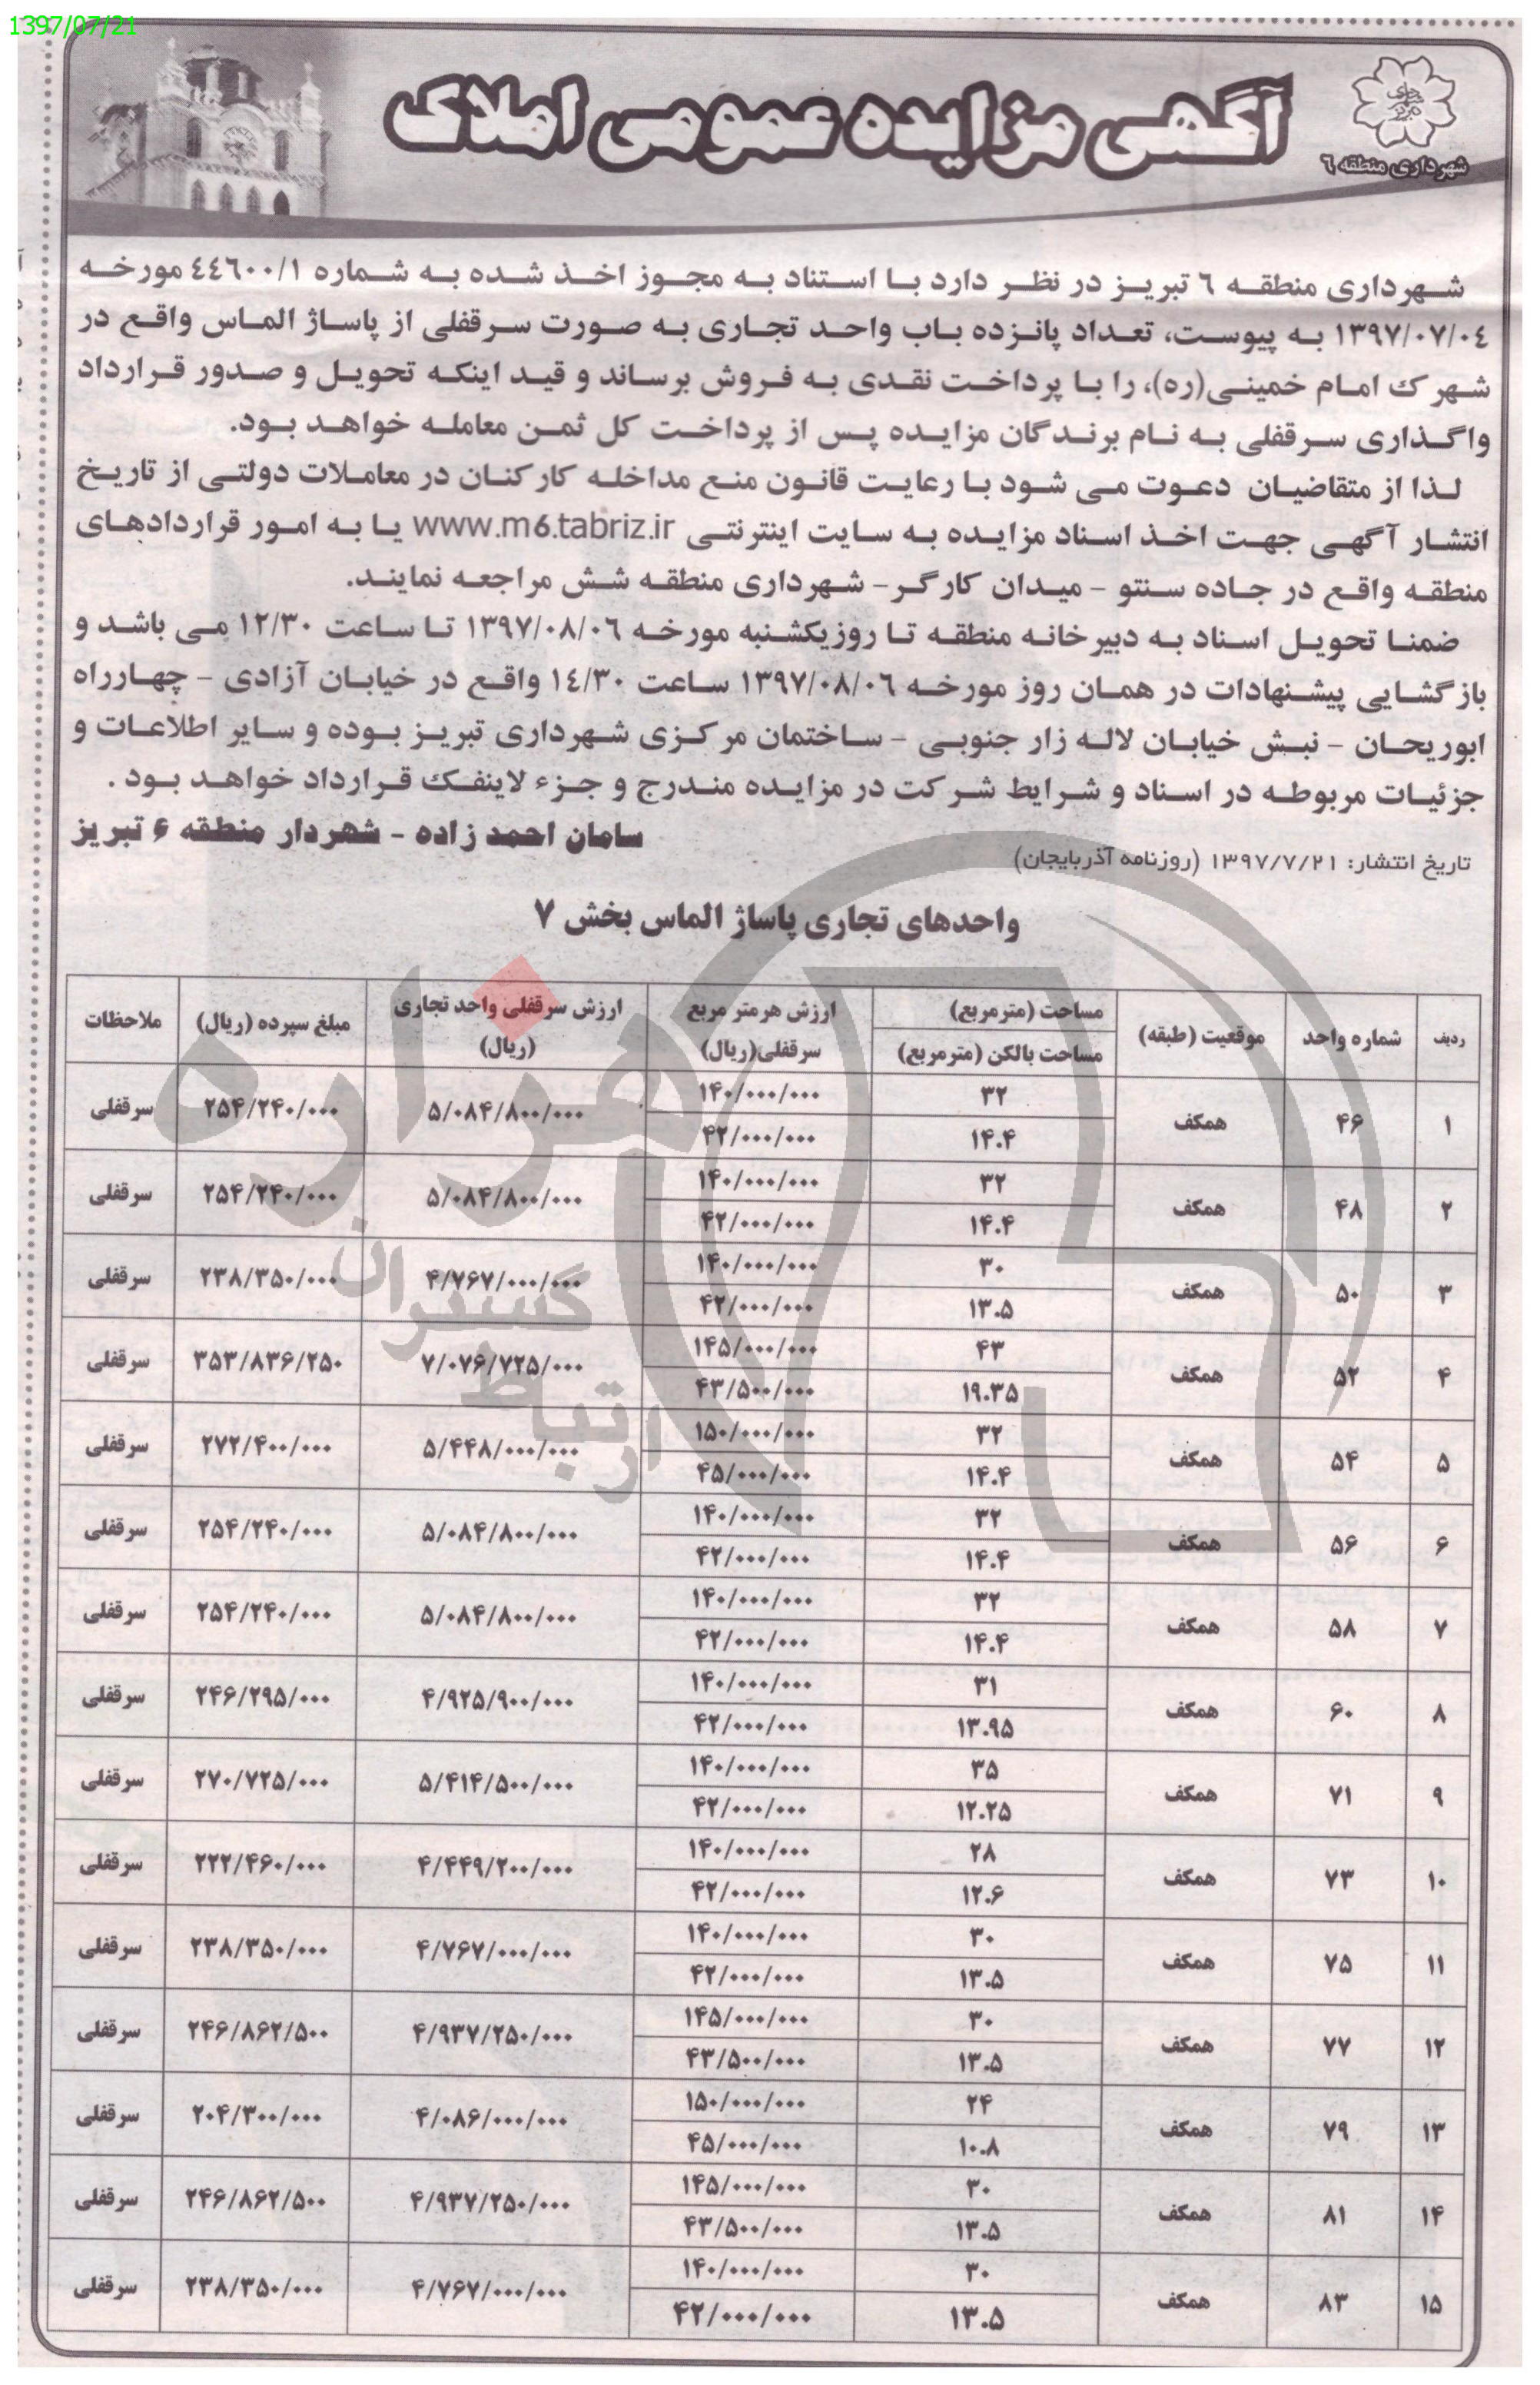 1397/07/21
شهرداری منطقه ٦
آگهی مزایده عمومی املاک
شهرداری منطقه ٦ تبریز در نظر دارد با استناد به مجوز اخذ شده به شماره ٤٤٦٠٠/١ مورخه
١٣٩٧/٠٧/٠٤ به پیوست، تعداد پانزده باب واحد تجاری به صورت سرقفلی از پاساژ الماس واقع در
شهرک امام خمینی(ره)، را با پرداخت نقدی به فروش برساند و قید اینکه تحویل و صدور قرارداد
واگذاری سرقفلی به نام برندگان مزایده پس از پرداخت کل ثمن معامله خواهد بود.
لذا از متقاضیان دعوت می شود با رعایت قانون منع مداخله کارکنان در معاملات دولتی از تاریخ
انتشار آگهی جهت اخذ اسناد مزایده به سایت اینترنتی www.m6.tabriz.ir یا به امور قراردادهای
منطقه واقع در جاده سنتو - میدان کارگر- شهرداری منطقه شش مراجعه نمایند.
ضمنا تحویل اسناد به دبیرخانه منطقه تا روزیکشنبه مورخه ١٣٩٧/٠٨/٠٦ تا ساعت ١٢/٣٠ می باشد و
بازگشایی پیشنهادات در همان روز مورخه ١٣٩٧/٠٨/٠٦ ساعت ١٤/٣٠ واقع در خیابان آزادی - چهارراه
ابوریحان - نبش خیابان لاله زار جنوبی - ساختمان مرکزی شهرداری تبریز بوده و سایر اطلاعات و
جزئیات مربوطه در اسناد و شرایط شرکت در مزایده مندرج و جزء لاینفک قرارداد خواهد بود .
سامان احمد زاده - شهردار منطقه ۶ تبریز
تاریخ انتشار: ۱۳۹۷/۷/۲۱ (روزنامه آذربایجان)
واحدهای تجاری پاساژ الماس بخش ۷
ردیف شماره واحد موقعیت (طبقه) مساحت (مترمربع) ارزش هرمتر مربع ارزش سرقفلی واحد تجاری مبلغ سپرده (ریال) ملاحظات
مساحت بالکن (مترمربع) سرقفلی(ریال) (ریال)
۱ ۴۶ همکف ۳۲ ۱۴۰/۰۰۰/۰۰۰ ۵/۰۸۴/۸۰۰/۰۰۰ ۲۵۴/۲۴۰/۰۰۰ سرقفلی
۱۴.۴ ۴۲/۰۰۰/۰۰۰
۲ ۴۸ همکف ۳۲ ۱۴۰/۰۰۰/۰۰۰ ۵/۰۸۴/۸۰۰/۰۰۰ ۲۵۴/۲۴۰/۰۰۰ سرقفلی
۱۴.۴ ۴۲/۰۰۰/۰۰۰
۳ ۵۰ همکف ۳۰ ۱۴۰/۰۰۰/۰۰۰ ۴/۷۶۷/۰۰۰/۰۰۰ ۲۳۸/۳۵۰/۰۰۰ سرقفلی
۱۳.۵ ۴۲/۰۰۰/۰۰۰
۴ ۵۲ همکف ۴۳ ۱۴۵/۰۰۰/۰۰۰ ۷/۰۷۶/۷۲۵/۰۰۰ ۳۵۳/۸۳۶/۲۵۰ سرقفلی
۱۹.۳۵ ۴۳/۵۰۰/۰۰۰
۵ ۵۴ همکف ۳۲ ۱۵۰/۰۰۰/۰۰۰ ۵/۴۴۸/۰۰۰/۰۰۰ ۲۷۲/۴۰۰/۰۰۰ سرقفلی
۱۴.۴ ۴۵/۰۰۰/۰۰۰
۶ ۵۶ همکف ۳۲ ۱۴۰/۰۰۰/۰۰۰ ۵/۰۸۴/۸۰۰/۰۰۰ ۲۵۴/۲۴۰/۰۰۰ سرقفلی
۱۴.۴ ۴۲/۰۰۰/۰۰۰
۷ ۵۸ همکف ۳۲ ۱۴۰/۰۰۰/۰۰۰ ۵/۰۸۴/۸۰۰/۰۰۰ ۲۵۴/۲۴۰/۰۰۰ سرقفلی
۱۴.۴ ۴۲/۰۰۰/۰۰۰
۸ ۶۰ همکف ۳۱ ۱۴۰/۰۰۰/۰۰۰ ۴/۹۲۵/۹۰۰/۰۰۰ ۲۴۶/۲۹۵/۰۰۰ سرقفلی
۱۳.۹۵ ۴۲/۰۰۰/۰۰۰
۹ ۷۱ همکف ۳۵ ۱۴۰/۰۰۰/۰۰۰ ۵/۴۱۴/۵۰۰/۰۰۰ ۲۷۰/۷۲۵/۰۰۰ سرقفلی
۱۲.۲۵ ۴۲/۰۰۰/۰۰۰
۱۰ ۷۳ همکف ۲۸ ۱۴۰/۰۰۰/۰۰۰ ۴/۴۴۹/۲۰۰/۰۰۰ ۲۲۲/۴۶۰/۰۰۰ سرقفلی
۱۲.۶ ۴۲/۰۰۰/۰۰۰
۱۱ ۷۵ همکف ۳۰ ۱۴۰/۰۰۰/۰۰۰ ۴/۷۶۷/۰۰۰/۰۰۰ ۲۳۸/۳۵۰/۰۰۰ سرقفلی
۱۳.۵ ۴۲/۰۰۰/۰۰۰
۱۲ ۷۷ همکف ۳۰ ۱۴۵/۰۰۰/۰۰۰ ۴/۹۳۷/۲۵۰/۰۰۰ ۲۴۶/۸۶۲/۵۰۰ سرقفلی
۱۳.۵ ۴۳/۵۰۰/۰۰۰
۱۳ ۷۹ همکف ۲۴ ۱۵۰/۰۰۰/۰۰۰ ۴/۰۸۶/۰۰۰/۰۰۰ ۲۰۴/۳۰۰/۰۰۰ سرقفلی
۱۰.۸ ۴۵/۰۰۰/۰۰۰
۱۴ ۸۱ همکف ۳۰ ۱۴۵/۰۰۰/۰۰۰ ۴/۹۳۷/۲۵۰/۰۰۰ ۲۴۶/۸۶۲/۵۰۰ سرقفلی
۱۳.۵ ۴۳/۵۰۰/۰۰۰
۱۵ ۸۳ همکف ۳۰ ۱۴۰/۰۰۰/۰۰۰ ۴/۷۶۷/۰۰۰/۰۰۰ ۲۳۸/۳۵۰/۰۰۰ سرقفلی
۱۳.۵ ۴۲/۰۰۰/۰۰۰
هزاره
گستران
ارتباط